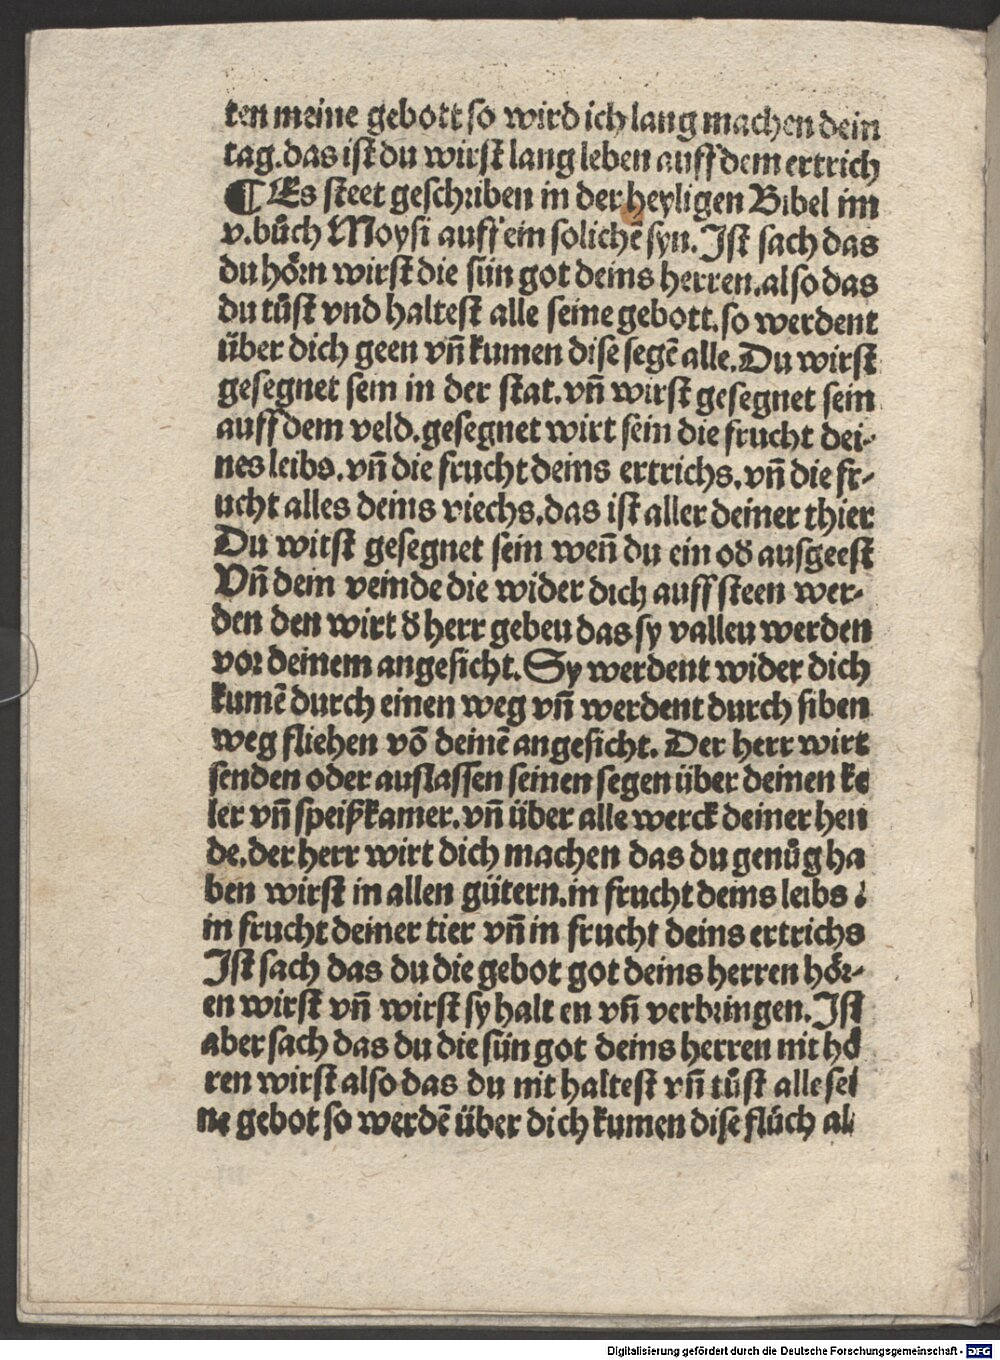 ten meine gebott so wird ich lang machen dein
tag. das ist du wirst lang leben auff dem ertrich
¶ Es steet geschriben in der heyligen Bibel im
v. bůch Moysi auff ein solichē syn. Ist sach das
du hörn wirst die stin got deins herren. also das
du tůst vnd haltest alle seine gebott. so werdent
über dich geen vñ kumen dise segē alle. Du wirst
gesegnet sein in der stat. vñ wirst gesegnet sein
auff dem veld. gesegnet wirt sein die frucht dei-
nes leibs. vñ die frucht deins ertrichs. vñ die fr-
ucht alles deins viechs. das ist aller deiner thier
Du wirst gesegnet sein weñ du ein oď ausgeest
Vñ dein veinde die wider dich auff steen wer-
den den wirt ď herr gebeu das sy valleu werden
vor deinem angesicht. Sy werdent wider dich
kumē durch einen weg vñ werdent durch siben
weg fliehen võ deinē angesicht. Der herr wirt
senden oder auslassen seinen segen über deinen ke
ler vñ speißkamer. vñ über alle werck deiner hen
de. der herr wirt dich machen das du genůg ha
ben wirst in allen gütern. in frucht deins leibs
in frucht deiner tier vñ in frucht deins ertrichs
Ist sach das du die gebot got deins herren hör-
en wirst vñ wirst sy halt en vñ verbringen. Ist
aber sach das du die stin got deins herren nit hö
ren wirst also das du nit haltest vñ tůst alle sei
ne gebot so werdē über dich kumen dise flüch al
Digitalisierung gefördert durch die Deutsche Forschungsgemeinschaft - DFG